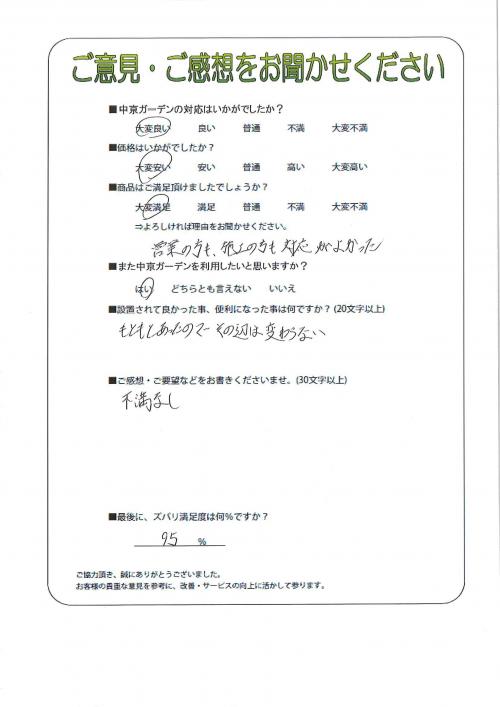 ご意見・ご感想をお聞かせください
■中京ガーデンの対応はいかがでしたか？
大変良い 良い 普通 不満 大変不満
■価格はいかがでしたか？
大変安い 安い 普通 高い 大変高い
■商品はご満足頂けましたでしょうか？
大変満足 満足 普通 不満 大変不満
⇒よろしければ理由をお聞かせください。
営業の方も、施工の方も対応がよかった
■また中京ガーデンを利用したいと思いますか？
はい どちらとも言えない いいえ
■設置されて良かった事、便利になった事は何ですか？(20文字以上)
もともとあったのでその辺は変わらない
■ご感想・ご要望などをお書きくださいませ。(30文字以上)
不満なし
■最後に、ズバリ満足度は何%ですか？
95 %
ご協力頂き、誠にありがとうございました。
お客様の貴重な意見を参考に、改善・サービスの向上に活かして参ります。